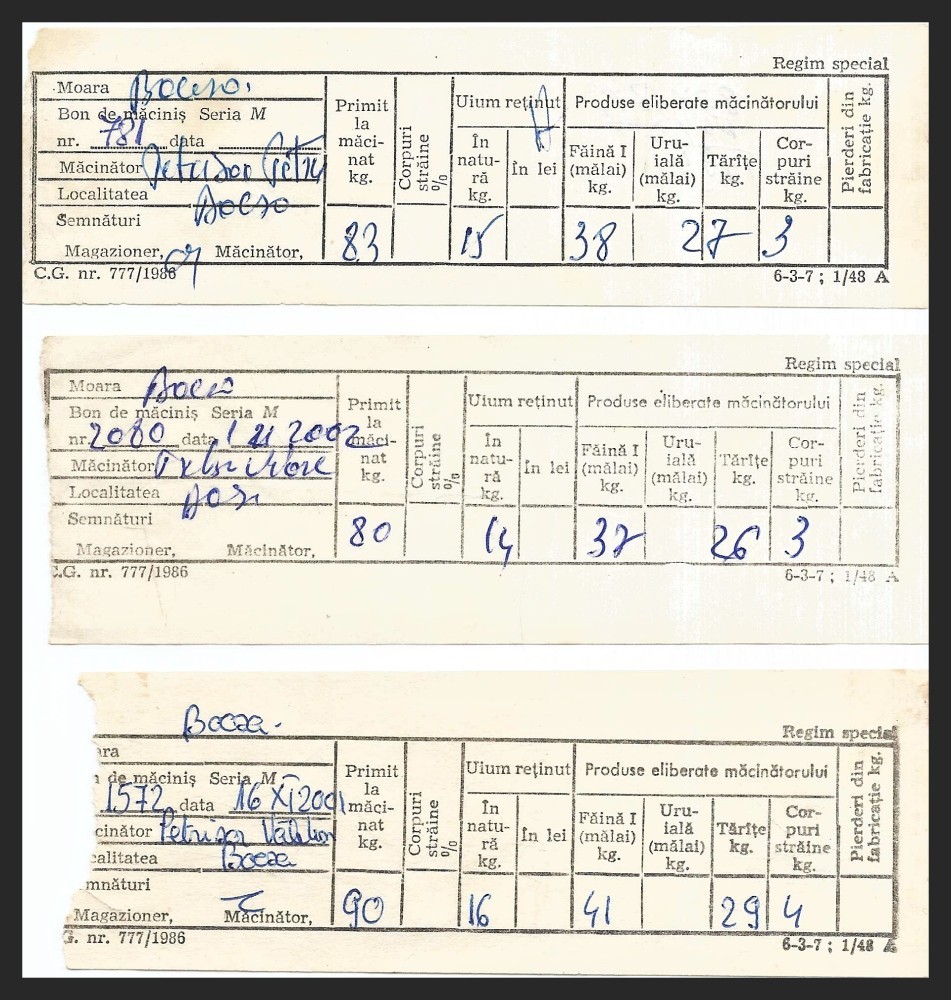 Regim special
Moara Bocsa.
Bon de măciniş Seria M
nr. 781 data
Măcinător Petrisor Petru
Localitatea Bocsa
Semnături
Magazioner, Măcinător,
Primit la măcinat kg.
Corpuri străine %
Uium reţinut
În natură kg.
În lei
Produse eliberate măcinătorului
Făină I (mălai) kg.
Uruială (mălai) kg.
Tărîţe kg.
Corpuri străine kg.
Pierderi din fabricaţie kg.
83 15 38 27 3
C.G. nr. 777/1986 6-3-7 ; 1/48 A
Regim special
Moara Bocsa
Bon de măciniş Seria M
nr. 2080 data 2002
Măcinător
Localitatea
Semnături
Magazioner, Măcinător,
Primit la măcinat kg.
Corpuri străine %
Uium reţinut
În natură kg.
În lei
Produse eliberate măcinătorului
Făină I (mălai) kg.
Uruială (mălai) kg.
Tărîţe kg.
Corpuri străine kg.
Pierderi din fabricaţie kg.
80 14 37 26 3
C.G. nr. 777/1986 6-3-7 ; 1/48 A
Bocsa.
Regim special
ara
n de măciniş Seria M
1572 data 16 XI 2001
cinător Petrisor
calitatea Bocsa
mnături
Magazioner, Măcinător,
Primit la măcinat kg.
Corpuri străine %
Uium reţinut
În natură kg.
În lei
Produse eliberate măcinătorului
Făină I (mălai) kg.
Uruială (mălai) kg.
Tărîţe kg.
Corpuri străine kg.
Pierderi din fabricaţie kg.
90 16 41 29 4
G. nr. 777/1986 6-3-7 ; 1/48 A